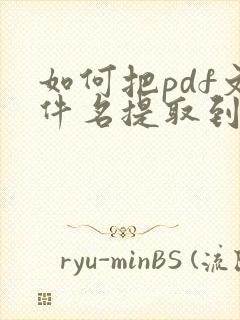 如何把pdf文
件名提取到
ryu-minBS (流